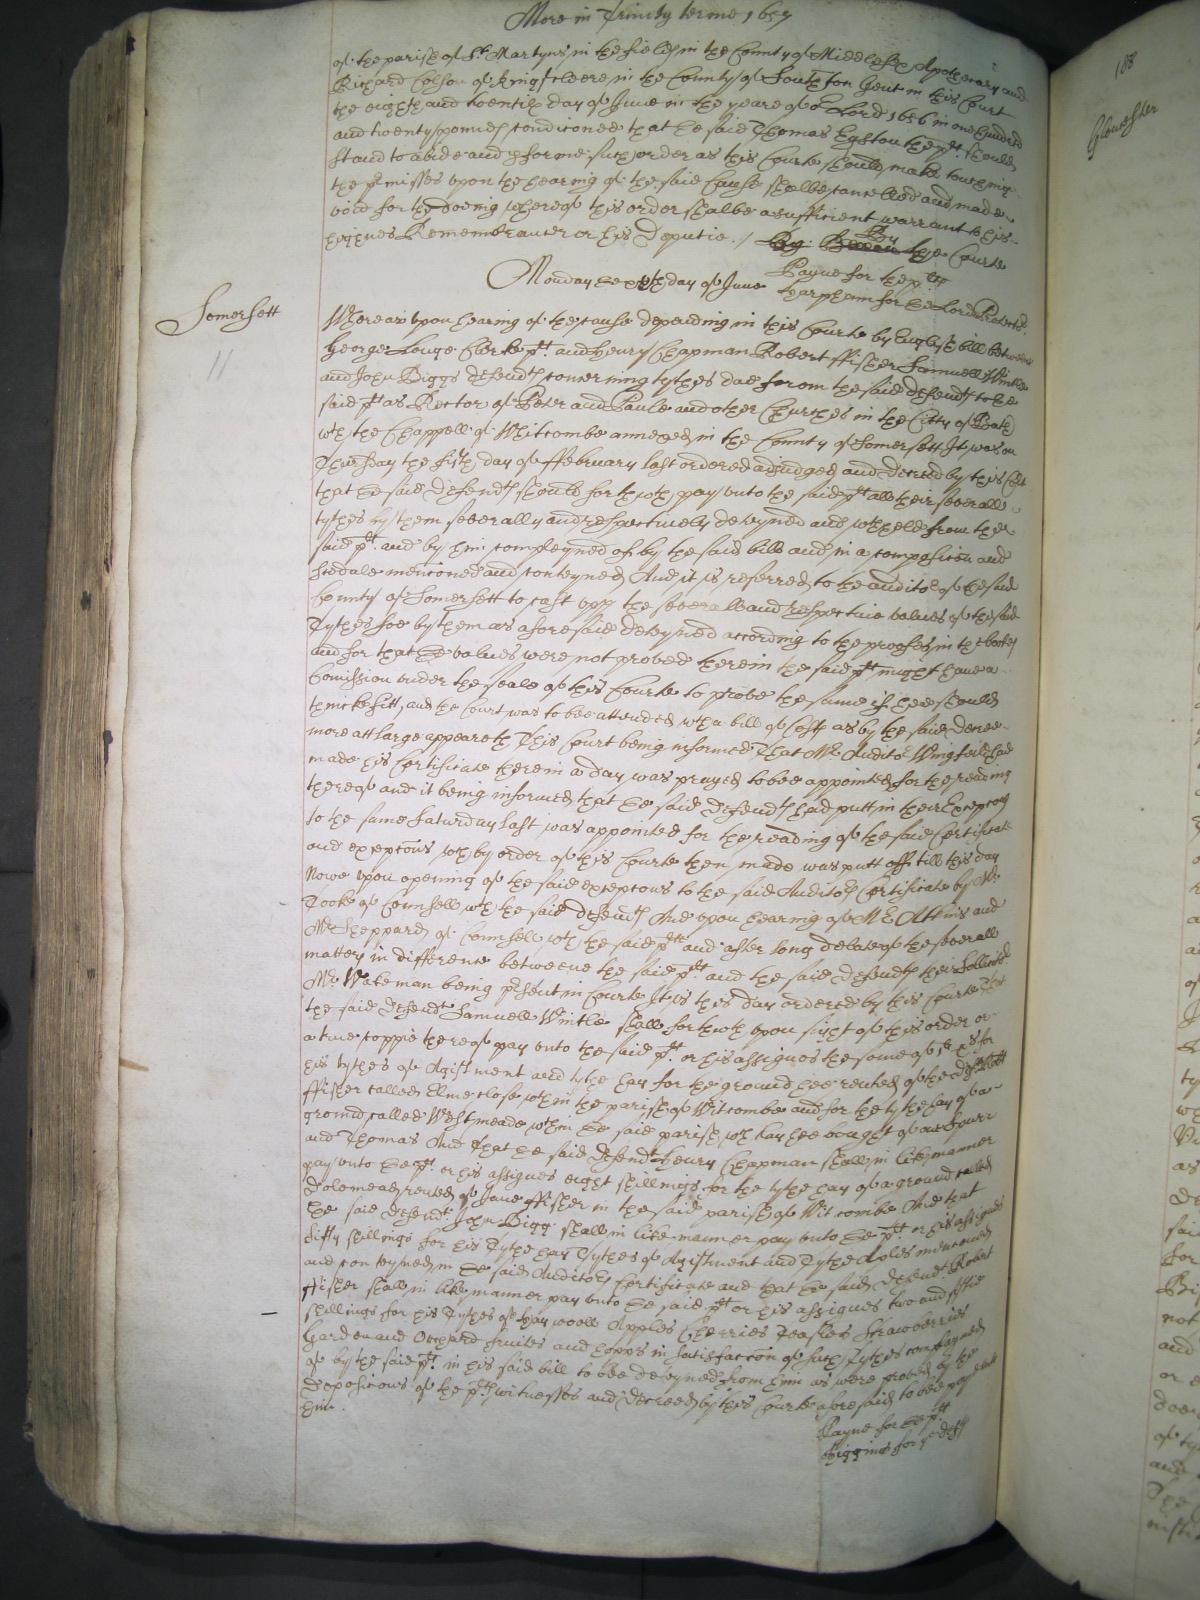 More in Trinity terme 1657
of the parish of St. Martyns in the fields in the County of Middlesex Apothecary and
Richard Colson of Kingscleere in the County of Southton Gent in this Court
the eight and twentith day of June in the yeare of or Lord 1656 in one hundred
and twenty pounds condiconed that he said Thomas the plt. should
stand to abide and pforme such order as this Courte should make touching
the pmisses upon the hearing of the said Cause shalbe cancelled and made
void for the doeing whereof this order shalbe a sufficient warrant to his
highnes Remembrancer or his Deputie. / By the Courte
Payne for the plt
Monday the day of June for the Lord Protector
Somersett
11
Whereas upon hearing of the cause depending in this Courte by English bill betweene
George Clerke plt. and Henry Chapman Robert ffisher Samuell Wintle
and John Biggs defendts concerning tythes due from the said defendts to the
said plt as Rector of Peter and Paule and other Churches in the Citty of Bath
wth the Chappell of Whitcombe annexed in the County of Somersett It was on
Thursday the fifth day of ffebruary last ordered adjudged and decreed by this Cort
that the said defendts should forthwth pay unto the said plt all their severall
tythes by them severally and respectively deteyned and wthheld from the
said plt. and by him compleyned of by the said bill and in a composicon and
scedule mencioned and conteyned And it is referred to the auditor of the said
County of Somersett to cast upp the severall and respective values of the said
Tythes soe by them as aforesaid deteyned according to the proofes in the bookes
and for that the values were not proved therein the said plt might have a
Comission under the seale of this Courte to prove the same if hee should
thincke fitt, and the Court was to bee attended wth a bill of Costs as by the said decree
more att large appeareth This Court being informed That Mr Auditor Wingfeild had
made his Certificate therein a day was prayed to bee appointed for the reading
thereof and it being informed that the said defendts had putt in their Excepcons
to the same Saturday last was appointed for the reading of the said Certificate
and excepcons wch by order of this Courte then made was putt off till this day
Nowe upon opening of the said excepcons to the said Auditors Certificate by Mr
Tooke of Counsell wth the said defendts And upon hearing of Mr Atkins and
Mr Sheppard of Counsell wth the said plt and after long debate of the severall
matters in difference betweene the said plt. and the said defendts their Sollicitor
Mr Wakeman being psent in Courte It is this day ordered by this Courte That
the said defendt Samuell Wintle shall forthwth upon sight of this order or
a true coppie thereof pay unto the said plt. or his assignes the some of for
his tythes of Agistment and tythe hay for the ground hee rented of the defendt
ffisher called Elme close wthin the parish of Witcombe and for the tythe hay of a
ground called Westmeade wthin the said parish wch hay hee bought of
and Thomas And That the said defendt Henry Chapman shall in like manner
pay unto the plt. or his assignes eight shillings for the tythe hay of a ground called
Dolemead rented of Jane ffisher in the said parish of Witcombe And that
the said defendt. John Biggs shall in like manner pay unto the plt. or his assignes
fifty shillings for his Tythe hay Tythes of Agistment and Tythe Aples mencioned
and conteyned in the said Auditors Certificate and that the said defendt. Robert
ffisher shall in like manner pay unto the said plt or his assignes two and fiftie
shillings for his Tythes of hay wooll Apples Cherries Strawberries
Garden and Orchard fruites and hopps in satisfaccon of such Tythes complayned
of by the said plt. in his said bill to bee deteyned from him as were proved by the
Deposicons of the plts witnesses and decreed by this Courte aforesaid to bee payd unto
him.
Payne for the plt
Higgins for ye defts
188
Glouester